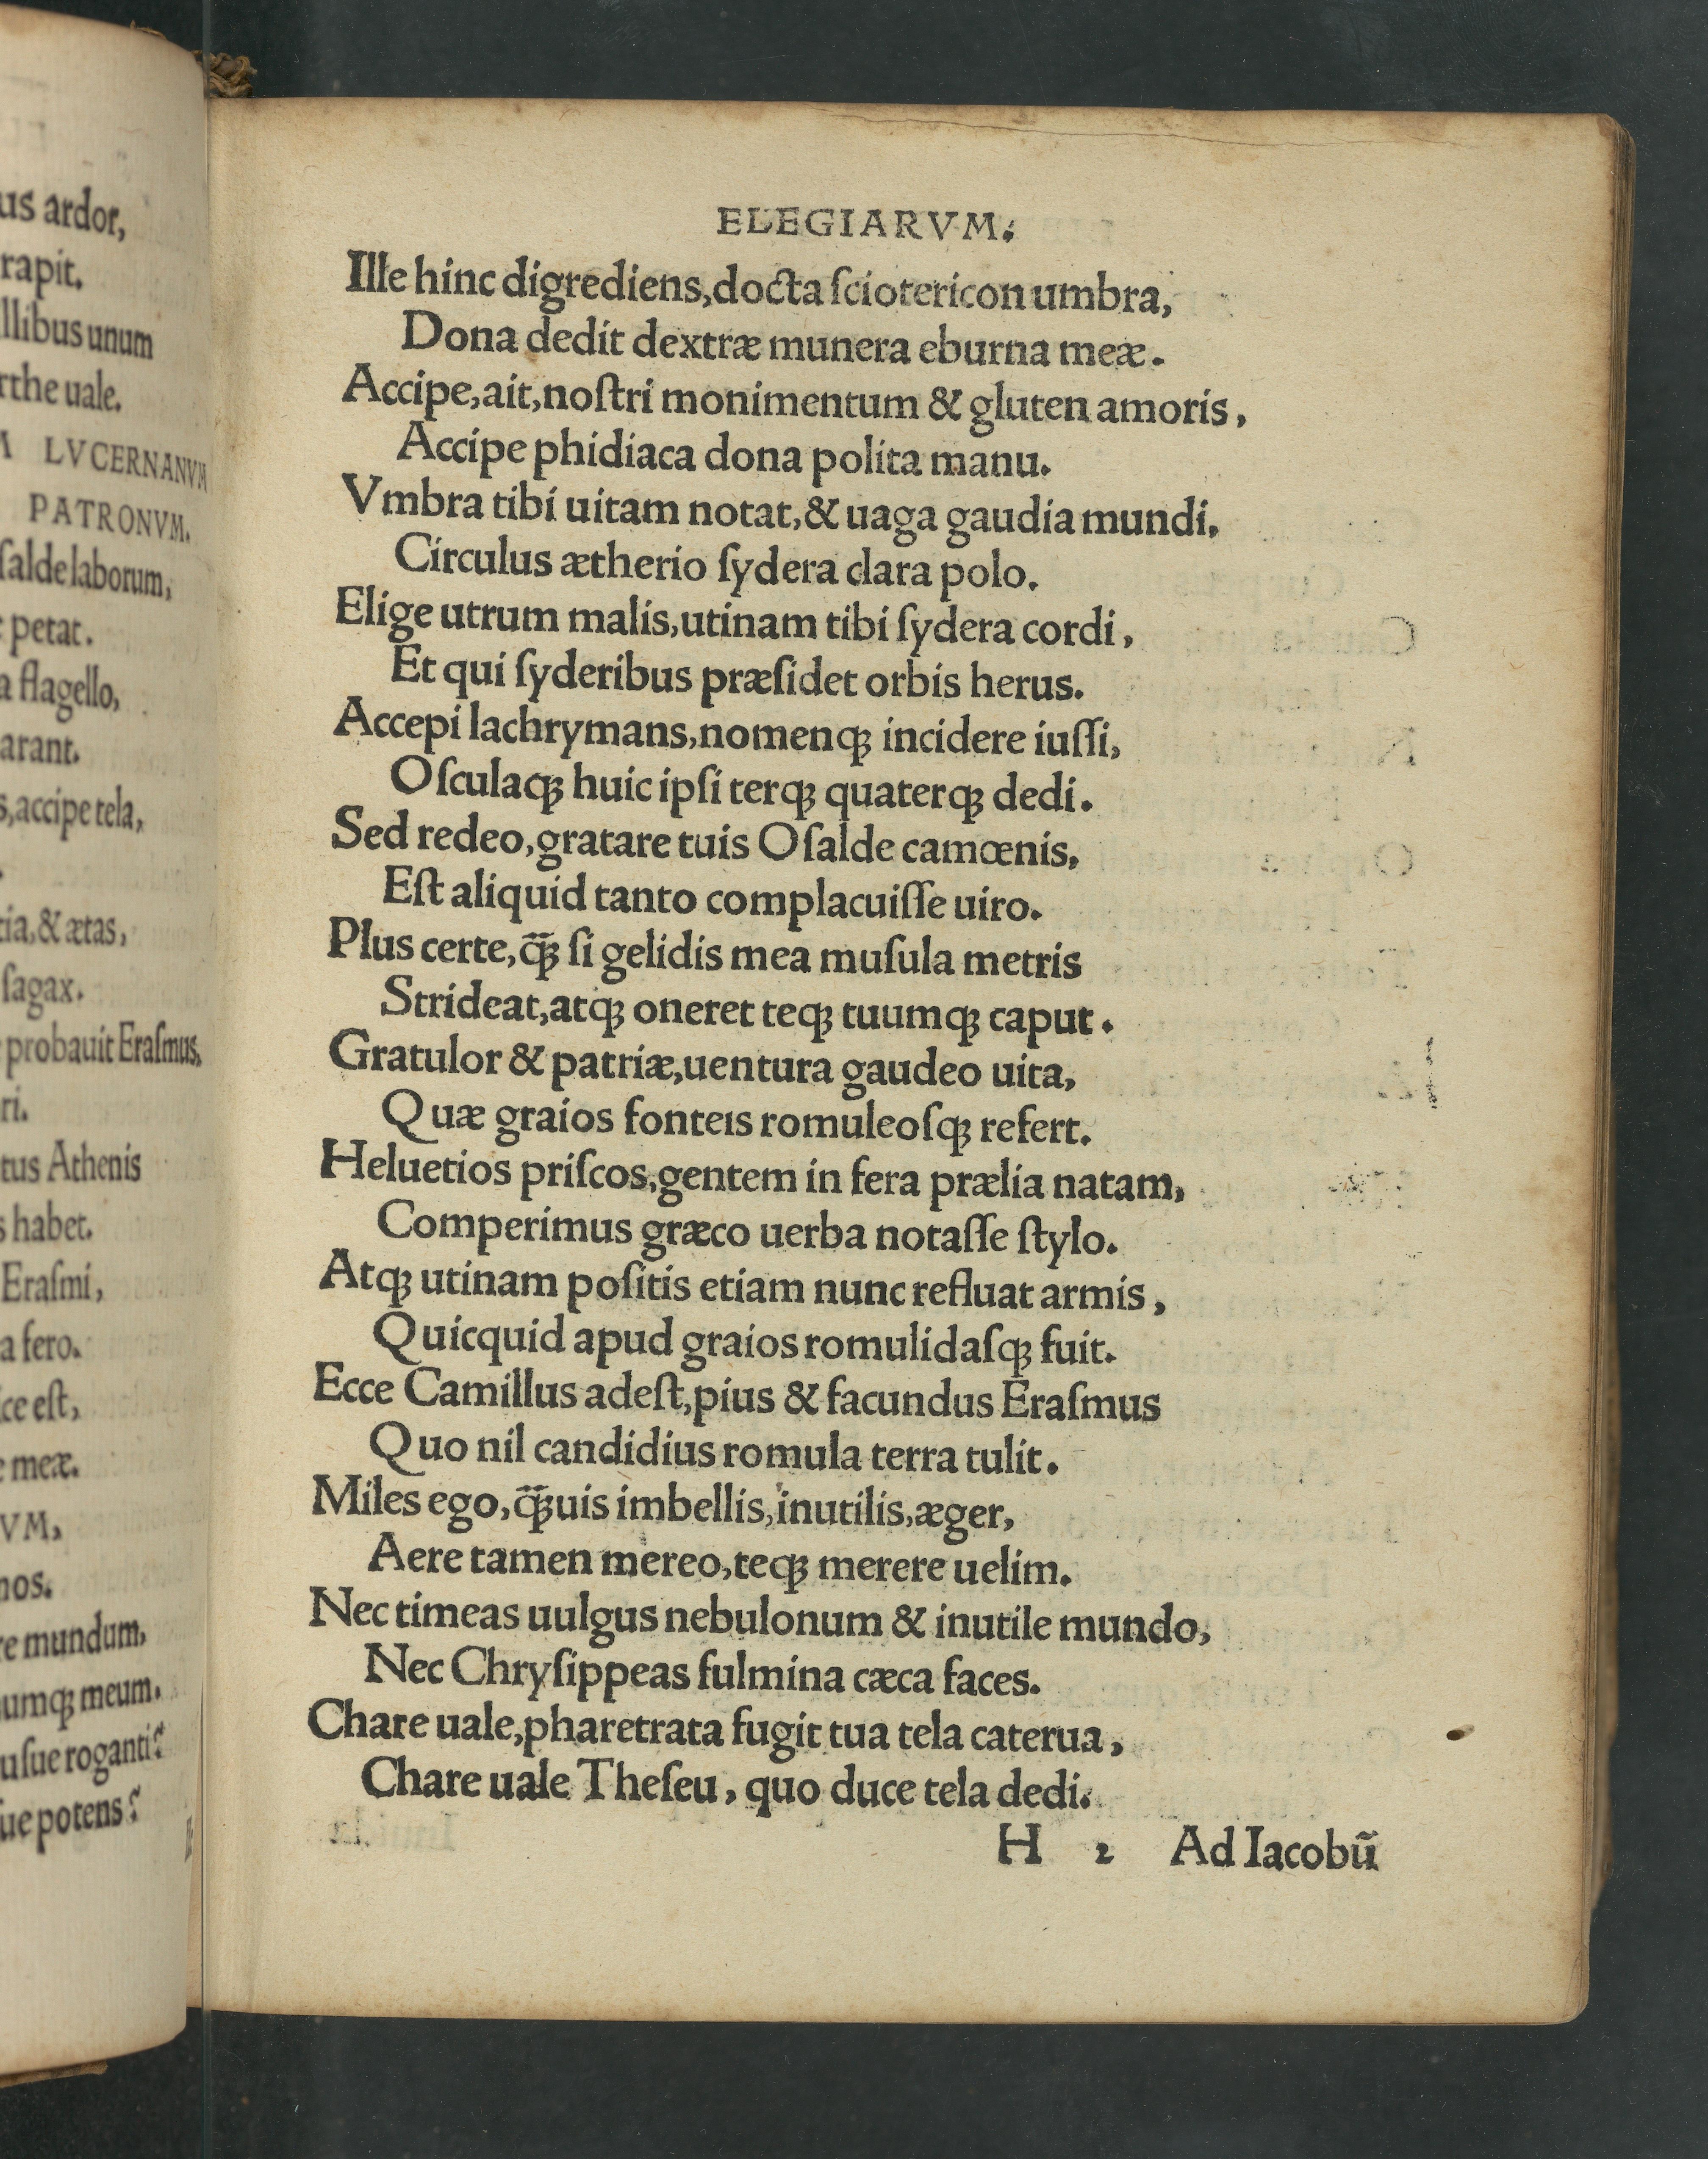 us ardor,
rapit.
llibus unum
rthe uale.
LVCERNANVM
PATRONVM.
ſalde laborum,
petat.
a flagello,
arant.
s, accipe tela,
tia, & ætas,
ſagax.
probauit Eraſmus,
ri.
tus Athenis
s habet.
Eraſmi,
a fero.
ce eſt,
e meæ.
VM,
nos.
re mundum,
umqꝫ meum.
uſue roganti?
ue potens?
ELEGIARVM.
Ille hinc digrediens, docta ſciotericon umbra,
Dona dedit dextræ munera eburna meæ.
Accipe, ait, noſtri monimentum & gluten amoris,
Accipe phidiaca dona polita manu.
Vmbra tibi uitam notat, & uaga gaudia mundi,
Circulus ætherio ſydera clara polo.
Elige utrum malis, utinam tibi ſydera cordi,
Et qui ſyderibus præſidet orbis herus.
Accepi lachrymans, nomenqꝫ incidere iuſſi,
Oſculaqꝫ huic ipſi terqꝫ quaterqꝫ dedi.
Sed redeo, gratare tuis Oſalde camœnis,
Eſt aliquid tanto complacuiſſe uiro.
Plus certe, q̃ꝫ ſi gelidis mea muſula metris
Strideat, atqꝫ oneret teqꝫ tuumqꝫ caput.
Gratulor & patriæ, uentura gaudeo uita,
Quæ graios fonteis romuleoſqꝫ refert.
Heluetios priſcos, gentem in fera prælia natam,
Comperimus græco uerba notaſſe ſtylo.
Atqꝫ utinam poſitis etiam nunc refluat armis,
Quicquid apud graios romulidaſqꝫ fuit.
Ecce Camillus adeſt, pius & facundus Eraſmus
Quo nil candidius romula terra tulit.
Miles ego, q̃ꝫuis imbellis, inutilis, æger,
Aere tamen mereo, teqꝫ merere uelim.
Nec timeas uulgus nebulonum & inutile mundo,
Nec Chryſippeas fulmina cæca faces.
Chare uale, pharetrata fugit tua tela caterua,
Chare uale Theſeu, quo duce tela dedi.
H 2 Ad Iacobũ